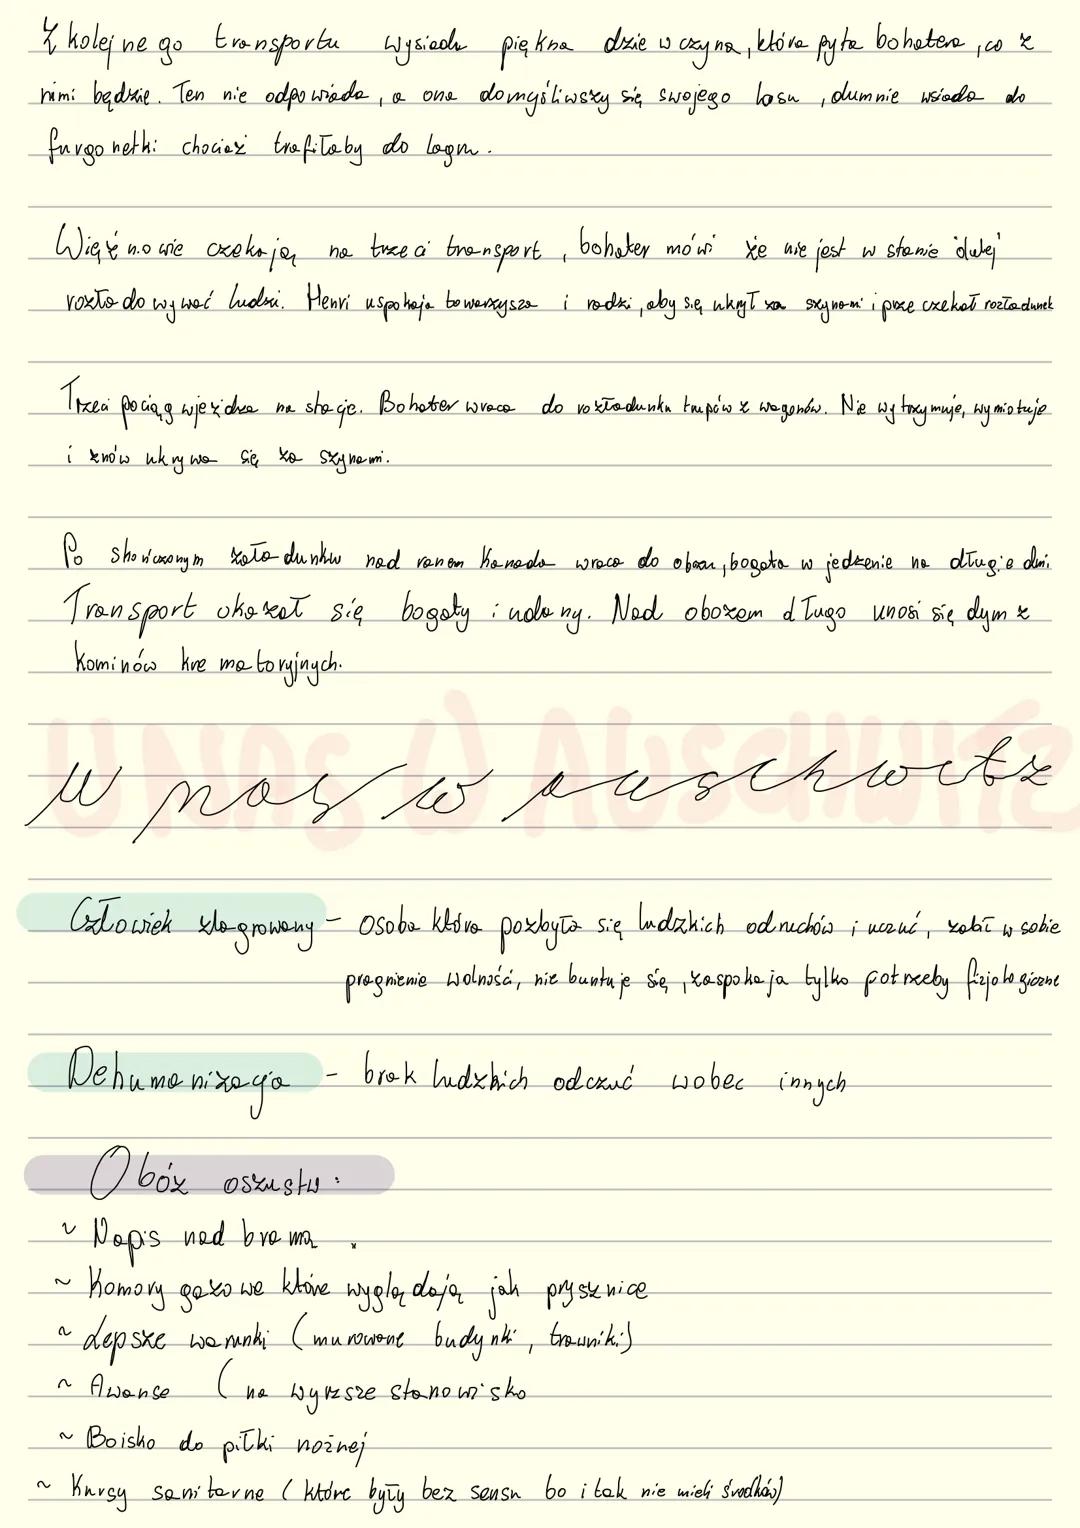 Z kolejnego transportu wysiada piękna dziewczyna, która pyta bohatera, co z
nimi będzie. Ten nie odpowiada, a ona domyśliwszy się swojego losu, dumnie wsiada do
furgonetki chociaż trafiłaby do łagru.
Więźniowie czekają na trzeci transport, bohater mówi że nie jest w stanie dalej
rozładowywać ludzi. Henri uspokaja towarzysza i radzi, aby się ukrył za szynami i przeczekał rozładunek
Trzeci pociąg wjeżdża na stację. Bohater wraca do rozładunku trupów z wagonów. Nie wytrzymuje, wymiotuje
i znów ukrywa się za szynami.
Po skończonym załadunku nad ranem Kanada wraca do obozu, bogata w jedzenie na długie dni.
Transport okazał się bogaty i udany. Nad obozem długo unosi się dym z
kominów krematoryjnych.
U NAS W AUSCHWITZ
U nas w auschwitz
Człowiek zlagrowany - osoba która pozbyła się ludzkich odruchów i uczuć, zabił w sobie
pragnienie wolność, nie buntuje się, zaspokaja tylko potrzeby fizjologiczne
Dehumanizacja - brak ludzkich odczuć wobec innych
Obóz oszustw:
~ Napis nad bramą
~ Komory gazowe które wyglądają jak prysznice
~ Lepsze warunki (murowane budynki, trawniki)
~ Awanse (na wyższe stanowisko
~ Boisko do piłki nożnej
~ Kursy sanitarne (które były bez sensu bo i tak nie mieli środków)